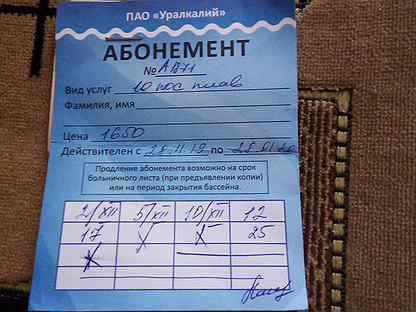 ПАО «Уралкалий»
АБОНЕМЕНТ
№
Вид услуг 10 пос плав
Фамилия, имя
Цена 1650
Действителен с 28.11.19 по 28.01.20
Продление абонемента возможно на срок
больничного листа (при предъявлении копии)
или на период закрытия бассейна.
2/XII 5/XII 10/XII 12
17 25